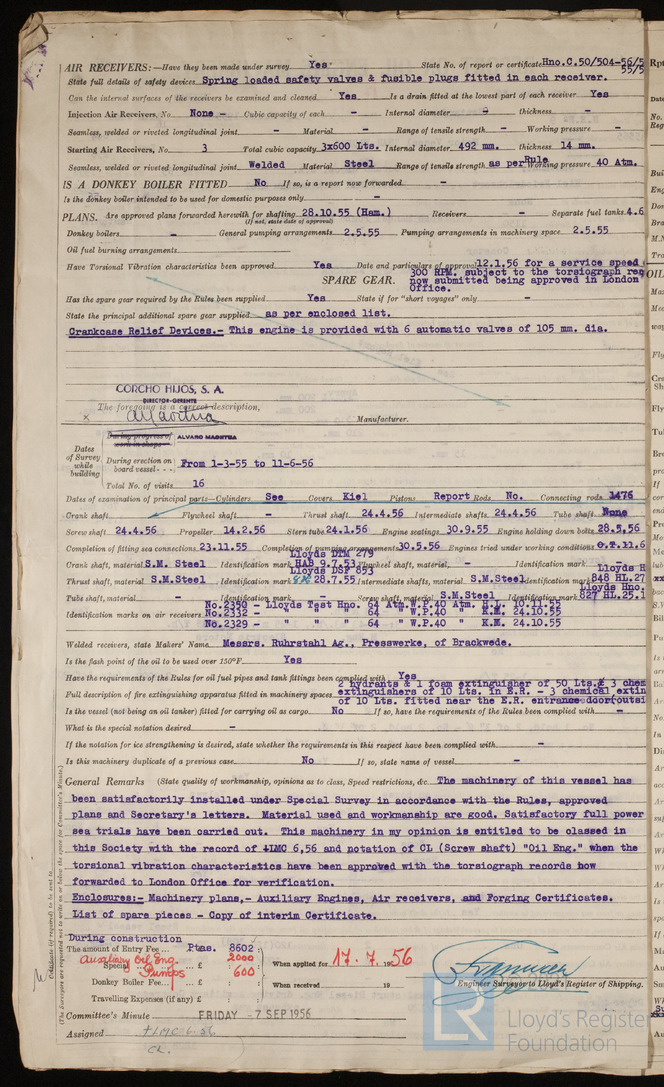 AIR RECEIVERS:—Have they been made under survey Yes State No. of report or certificate Hno.C.50/504-56/5
55/5
State full details of safety devices Spring loaded safety valves & fusible plugs fitted in each receiver.
Can the internal surfaces of the receivers be examined and cleaned Yes Is a drain fitted at the lowest part of each receiver Yes
Injection Air Receivers, No. None - Cubic capacity of each - Internal diameter - thickness -
Seamless, welded or riveted longitudinal joint - Material - Range of tensile strength - Working pressure -
Starting Air Receivers, No. 3 Total cubic capacity 3x600 Lts. Internal diameter 492 mm. thickness 14 mm.
Seamless, welded or riveted longitudinal joint Welded Material Steel Range of tensile strength as per Rule Working pressure 40 Atm.
IS A DONKEY BOILER FITTED No If so, is a report now forwarded -
Is the donkey boiler intended to be used for domestic purposes only -
PLANS. Are approved plans forwarded herewith for shafting 28.10.55 (Ham.) Receivers - Separate fuel tanks 4.6
(If not, state date of approval)
Donkey boilers - General pumping arrangements 2.5.55 Pumping arrangements in machinery space 2.5.55
Oil fuel burning arrangements
Have Torsional Vibration characteristics been approved Yes Date and particulars of approval 12.1.56 for a service speed
300 RPM. subject to the torsiograph rec
SPARE GEAR. now submitted being approved in London
Office.
Has the spare gear required by the Rules been supplied Yes State if for "short voyages" only -
State the principal additional spare gear supplied as per enclosed list.
Crankcase Relief Devices.- This engine is provided with 6 automatic valves of 105 mm. dia.
CORCHO HIJOS, S. A.
DIRECTOR-GERENTE
The foregoing is a correct description,
x Manufacturer.
During progress of work in shops - ALVARO MAORTUA
Dates of Survey while building
During erection on board vessel - - - From 1-3-55 to 11-6-56
Total No. of visits 16
Dates of examination of principal parts—Cylinders See Covers Kiel Pistons Report Rods No. Connecting rods 1476
Crank shaft Flywheel shaft - Thrust shaft 24.4.56 Intermediate shafts 24.4.56 Tube shaft None
Screw shaft 24.4.56 Propeller 14.2.56 Stern tube 24.1.56 Engine seatings 30.9.55 Engine holding down bolts 28.5.56
Completion of fitting sea connections 23.11.55 Completion of pumping arrangements 30.5.56 Engines tried under working conditions 11.6
Lloyds DIM 279
Crank shaft, material S.M. Steel Identification mark HAB 9.7.53 Flywheel shaft, material - Identification mark -
Lloyds DSP 853 Lloyds H
Thrust shaft, material S.M. Steel Identification mark 28.7.55 Intermediate shafts, material S.M.Steel Identification mark 848 HL.27
Lloyds Hno.
Tube shaft, material - Identification mark - Screw shaft, material S.M.Steel Identification mark 827 HL.25.1
No.2350 - Lloyds Test Hno. 64 Atm.W.P.40 Atm. H.L. 10.11.55
Identification marks on air receivers No.2332 - " " " 64 " W.P.40 " K.M. 24.10.55
No.2329 - " " " 64 " W.P.40 " K.M. 24.10.55
Welded receivers, state Makers' Name Messrs. Ruhrstahl Ag., Presswerke, of Brackwede.
Is the flash point of the oil to be used over 150°F. Yes
Have the requirements of the Rules for oil fuel pipes and tank fittings been complied with Yes
2 hydrants & 1 foam extinguisher of 50 Lts.& 3 chem
Full description of fire extinguishing apparatus fitted in machinery spaces extinguishers of 10 Lts. in E.R. - 3 chemical extin
of 10 Lts. fitted near the E.R. entrance door(outsi
Is the vessel (not being an oil tanker) fitted for carrying oil as cargo No If so, have the requirements of the Rules been complied with -
What is the special notation desired -
If the notation for ice strengthening is desired, state whether the requirements in this respect have been complied with -
Is this machinery duplicate of a previous case No If so, state name of vessel -
General Remarks (State quality of workmanship, opinions as to class, Speed restrictions, &c. The machinery of this vessel has
been satisfactorily installed under Special Survey in accordance with the Rules, approved
plans and Secretary's letters. Material used and workmanship are good. Satisfactory full power
sea trials have been carried out. This machinery in my opinion is entitled to be classed in
this Society with the record of +LMC 6,56 and notation of CL (Screw shaft) "Oil Eng." when the
torsional vibration characteristics have been approved with the torsiograph records now
forwarded to London Office for verification.
Enclosures:- Machinery plans,- Auxiliary Engines, Air receivers, and Forging Certificates.
List of spare pieces - Copy of interim Certificate.
During construction
The amount of Entry Fee ... Ptas. 8602 :
Auxiliary Oil Eng. 2000
Special Pumps ... £ 600 : When applied for 17.7.1956
Donkey Boiler Fee... £ : : When received 19
Engineer Surveyor to Lloyd's Register of Shipping.
Travelling Expenses (if any) £ : :
Committee's Minute FRIDAY - 7 SEP 1956
Assigned +LMC 6.56
CL.
(The Surveyors are requested not to write on or below the space for Committee's Minute.)
Certificate (if required) to be sent to
LR
Lloyd's Register
Foundation